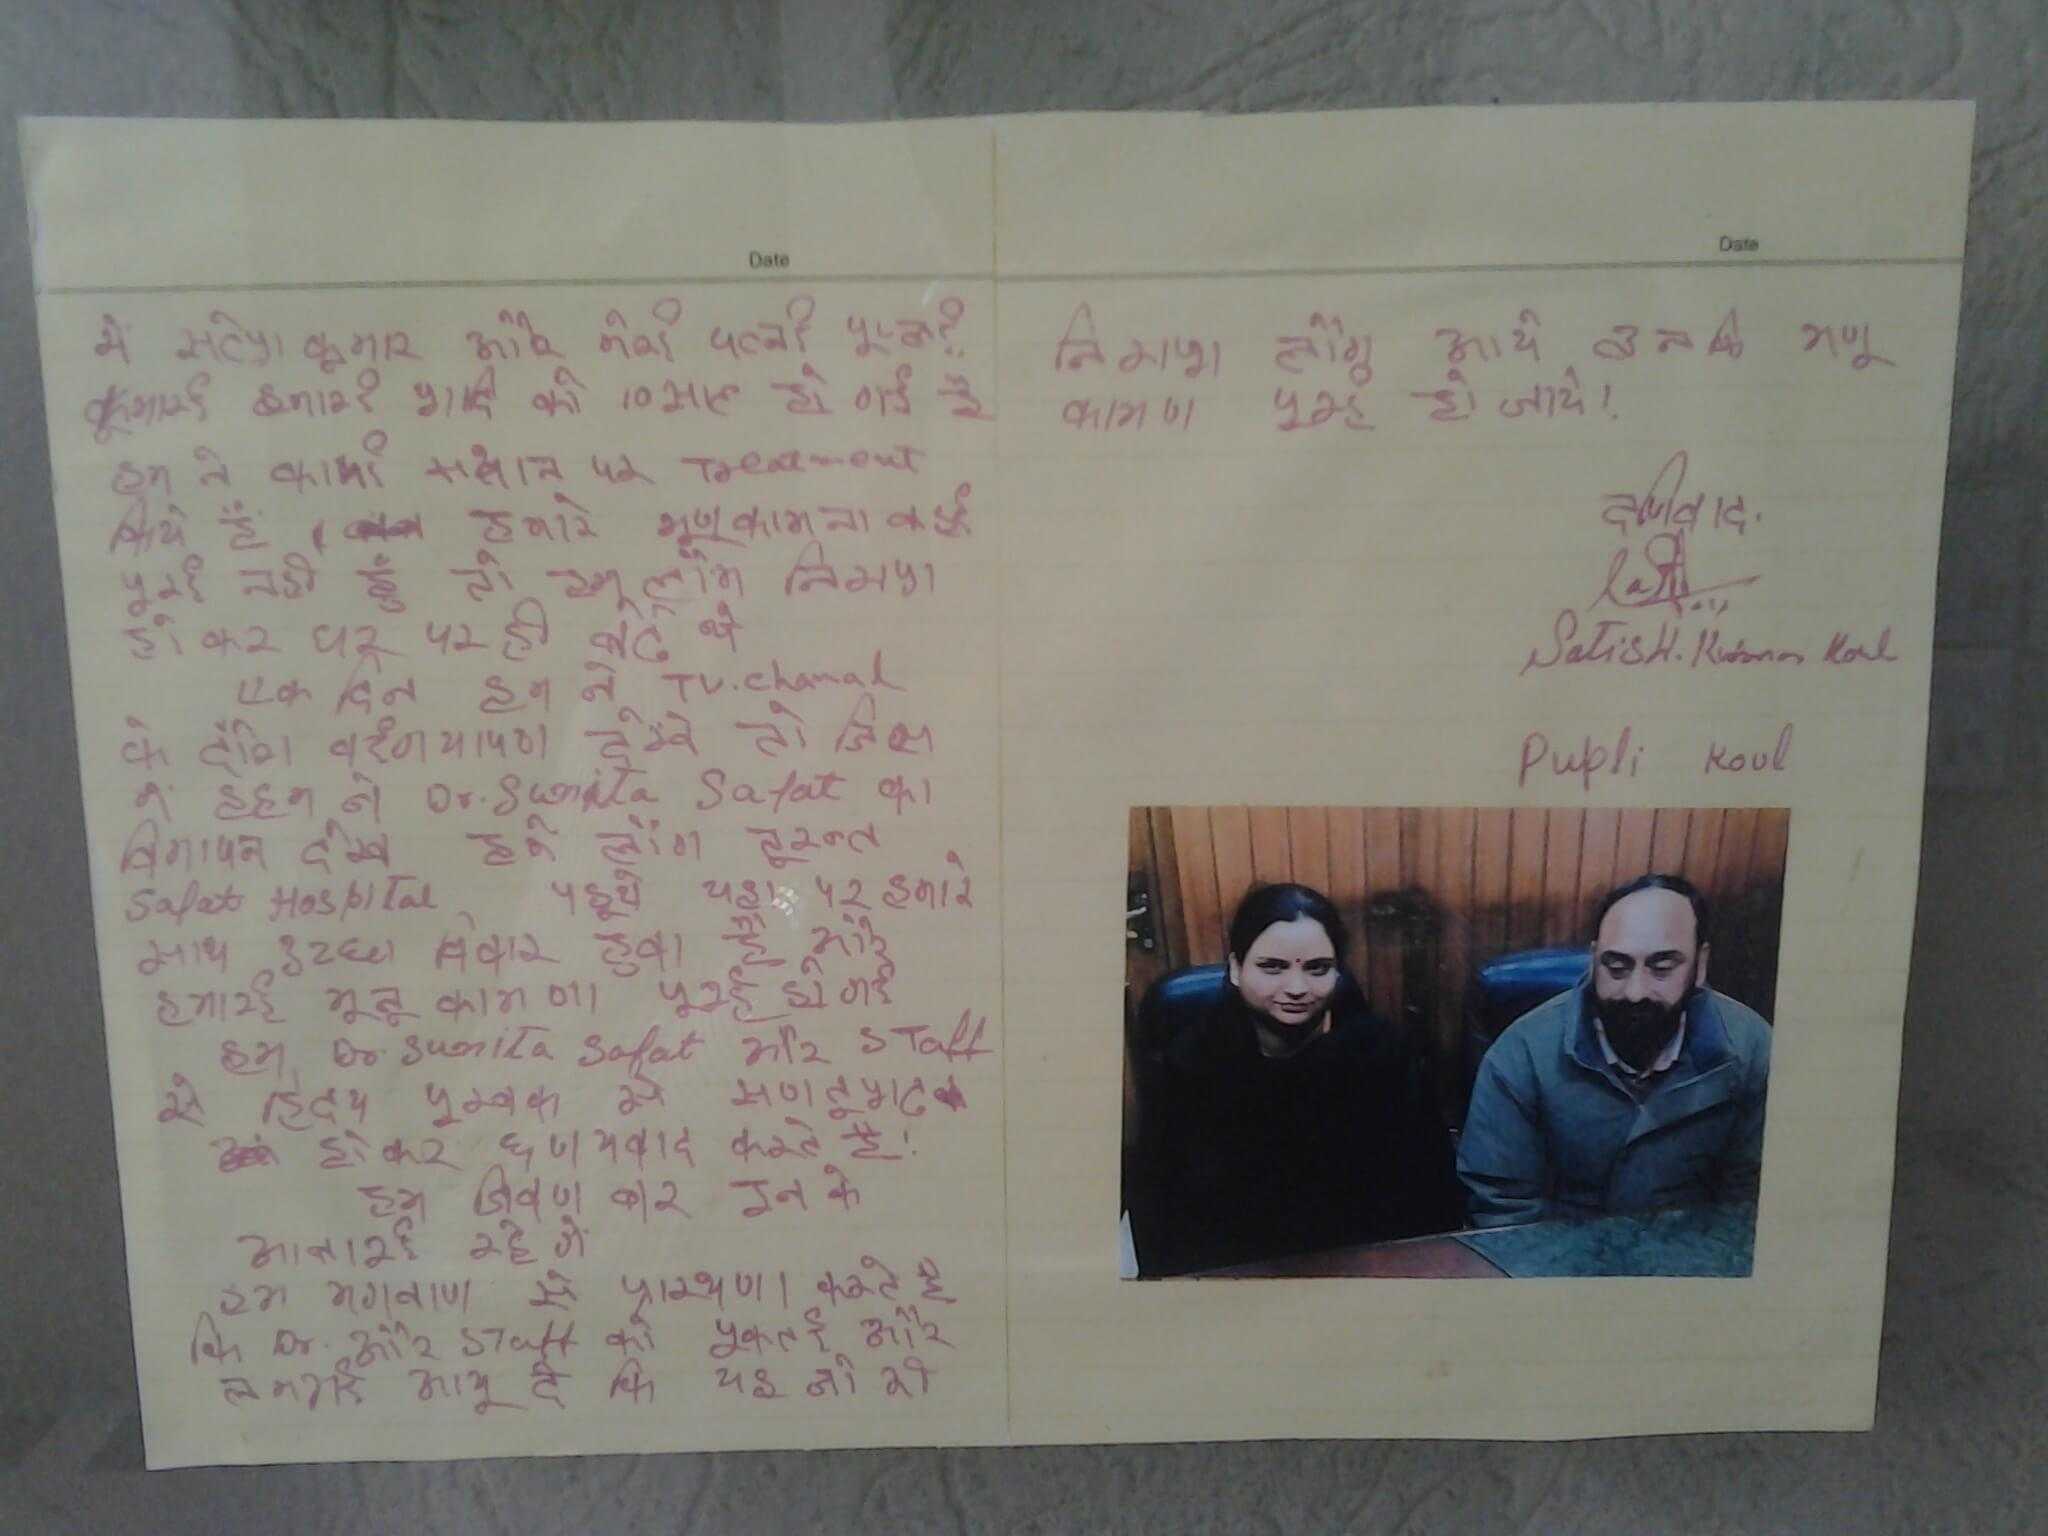 Date
में सतीश कुमार और मेरी पत्नी
कुमारी हमारी शादि को 10 साल हो गई है
हम ने काफी स्थान पर Treatment
किये हैं, हमारे
पुरई नही हुँ तो हम लोग निराशा
हो कर घर पर ही बेठे थे
एक दिन हम ने TV. Chanal
के देखे तो जिस
में हम ने Dr. Sunita Safat का
देखा हम लोग तुरन्त
Safat Hospital, पहूचे यहा पर हमारे
साथ हुवा है और
हमारई कामणा पुरई हो गई
हम Dr. Sunita Safat और STaff
से हिदय से
हो कर धणयवाद करते है!
हम जिवण बार इन के
रहे गें
हम भगवाण से प्रारथणा करते है
कि Dr. और STaff को और
आयू दे कि यह जो भी
Date
निराशा लोग आये उनकि
कामणा पुरई हो जाये!
दणिवाद.
Satish. Kumar Koul
Pupli Koul